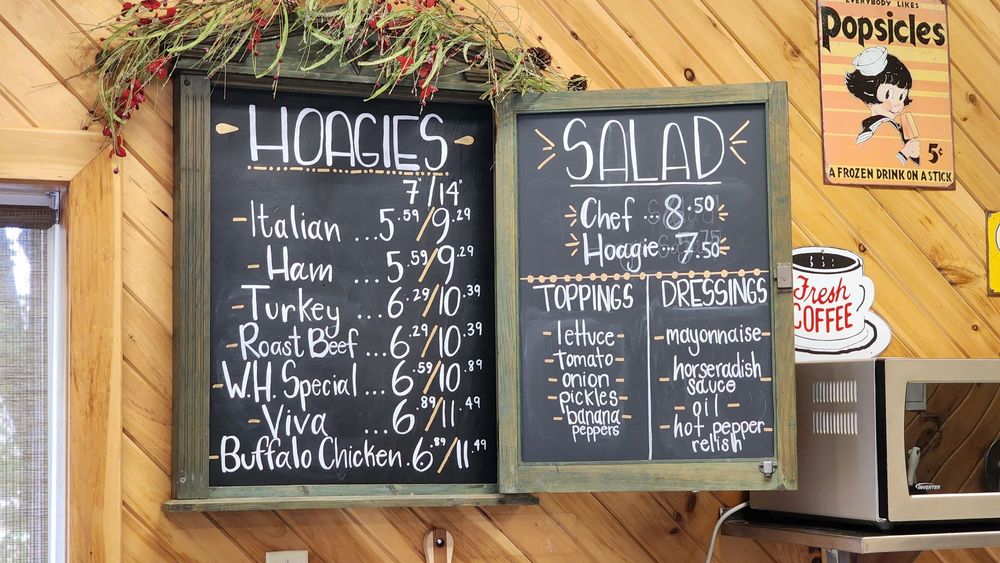 HOAGIES
7"/14"
Italian ...5.59/9.29
Ham ...5.59/9.29
Turkey ...6.29/10.39
Roast Beef ...6.29/10.39
W.H. Special ...6.59/10.89
Viva ...6.89/11.49
Buffalo Chicken.6.89/11.49
SALAD
Chef ...8.50
Hoagie...7.50
TOPPINGS
lettuce
tomato
onion
pickles
banana
peppers
DRESSINGS
mayonnaise
horseradish
sauce
oil
hot pepper
relish
EVERYBODY LIKES
Popsicles
5¢
A FROZEN DRINK ON A STICK
Fresh
COFFEE
INVERTER